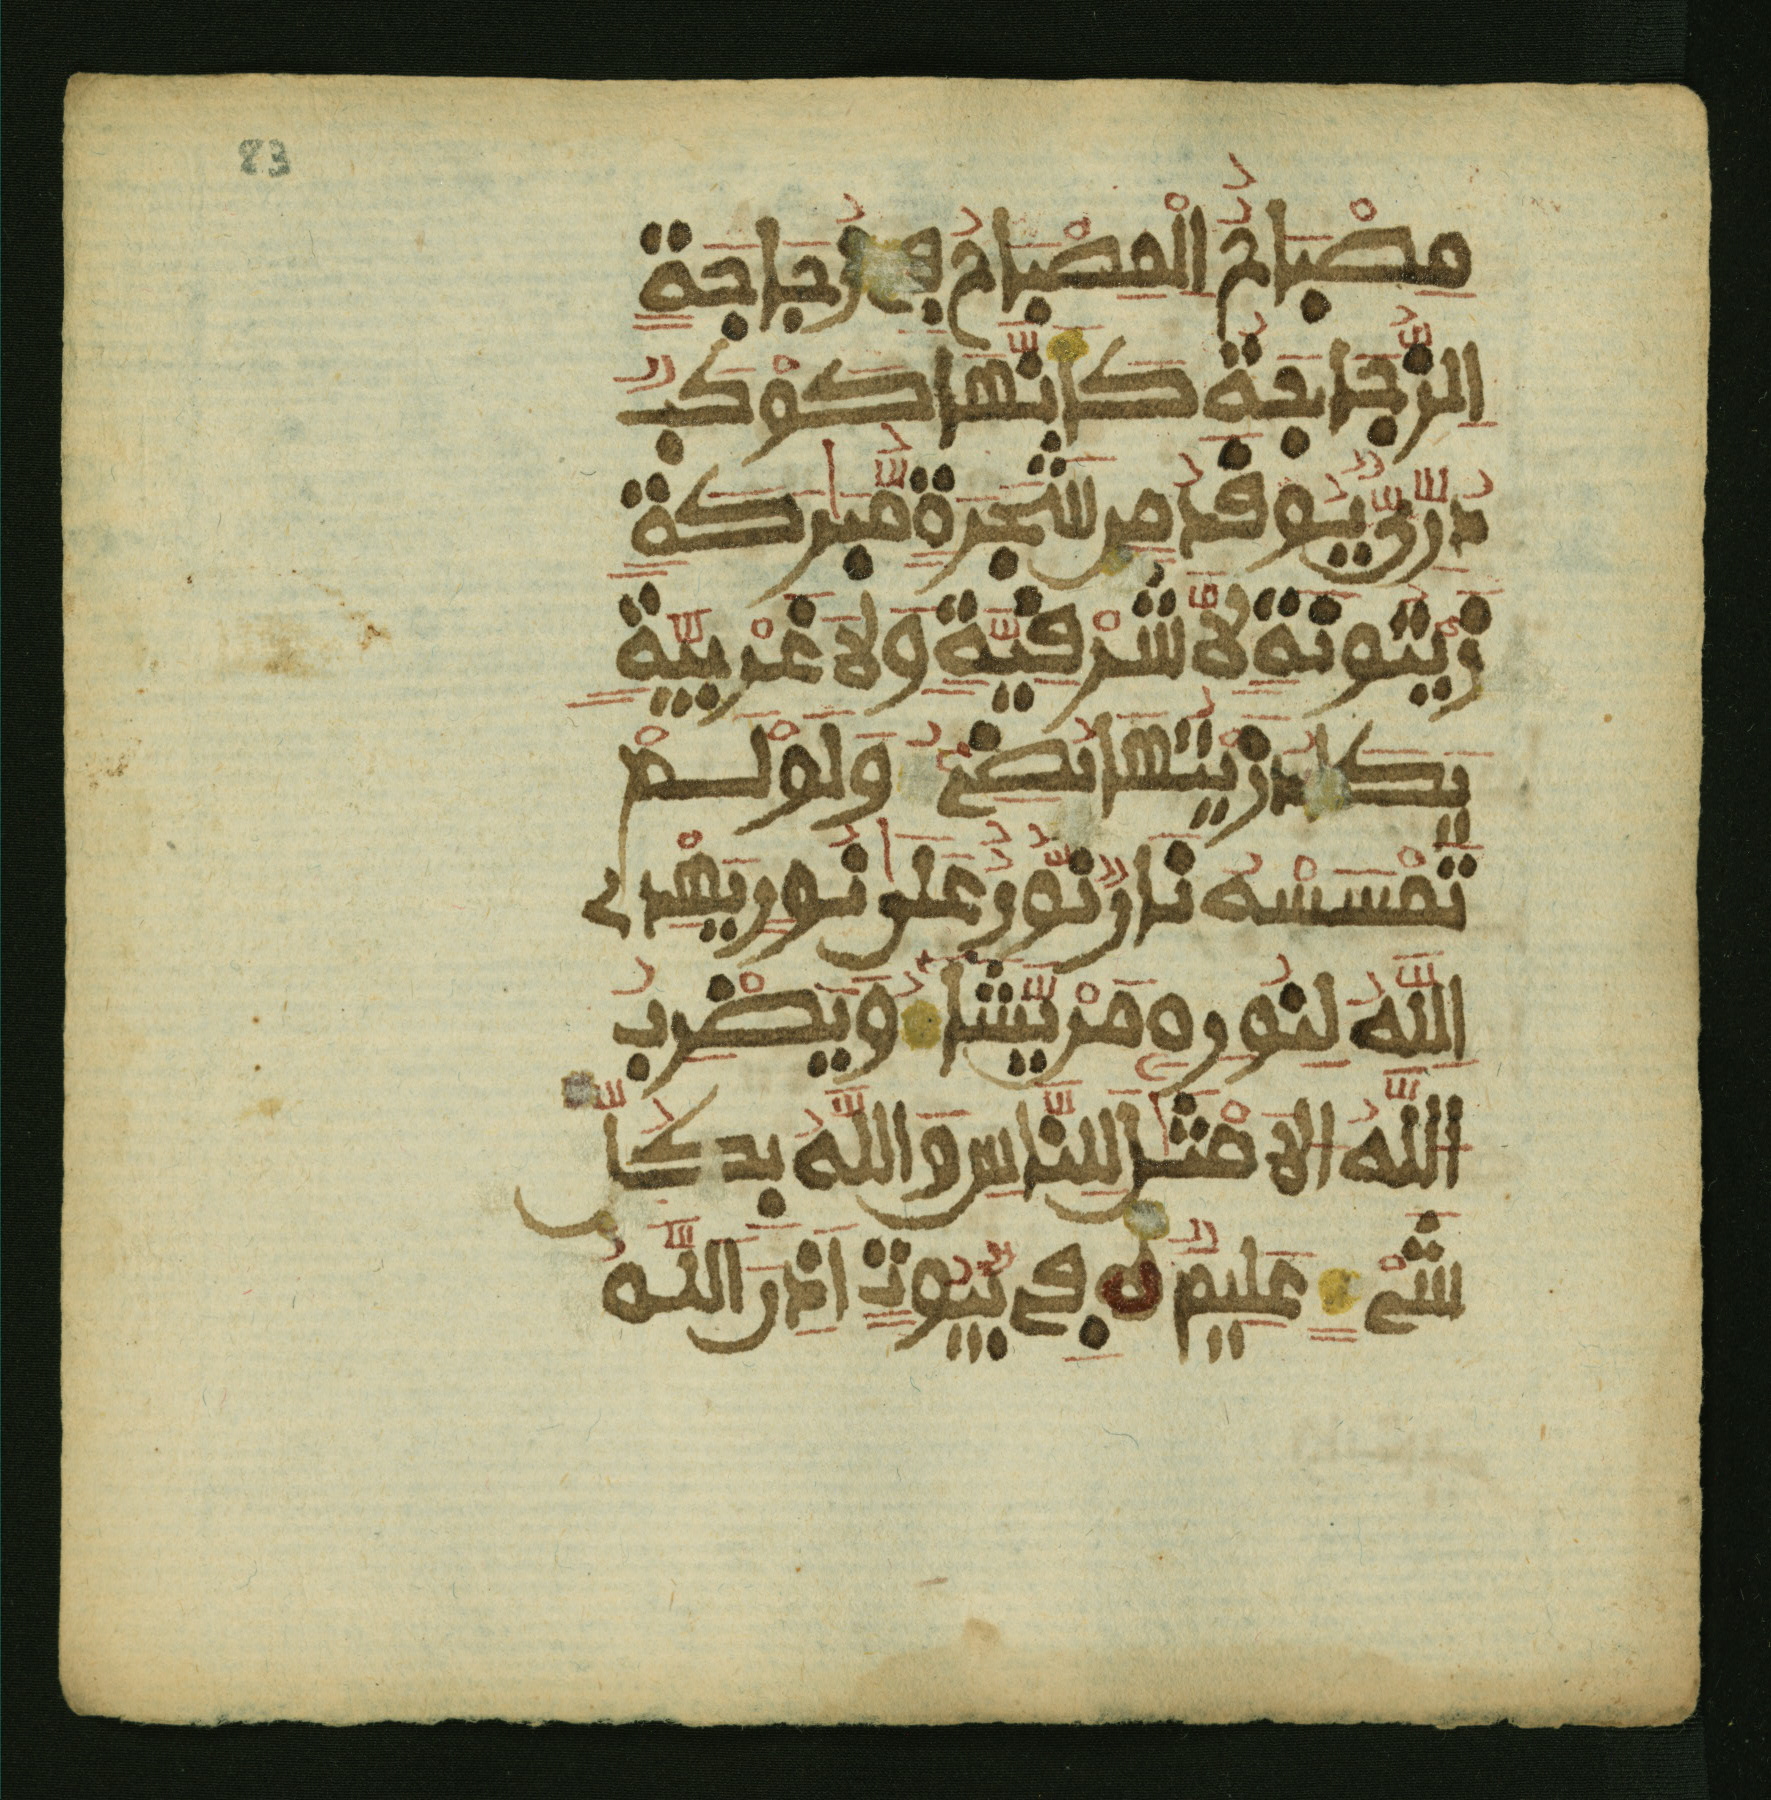 83
مِصْبَاحٌ الْمِصْبَاحُ فِي زُجَاجَةٍ
الزُّجَاجَةُ كَأَنَّهَا كَوْكَبٌ
دُرِّيٌّ يُوقَدُ مِن شَجَرَةٍ مُّبَٰرَكَةٍ
زَيْتُونَةٍ لَّا شَرْقِيَّةٍ وَلَا غَرْبِيَّةٍ
يَكَادُ زَيْتُهَا يُضِيءُ وَلَوْ لَمْ
تَمْسَسْهُ نَارٌ نُّورٌ عَلَىٰ نُورٍ يَهْدِي
اللَّهُ لِنُورِهِ مَنْ يَّشَاءُ وَيَضْرِبُ
اللَّهُ الْأَمْثَٰلَ لِلنَّاسِ وَاللَّهُ بِكُلِّ
شَيْءٍ عَلِيمٌ فِي بُيُوتٍ أَذِنَ اللَّهُ